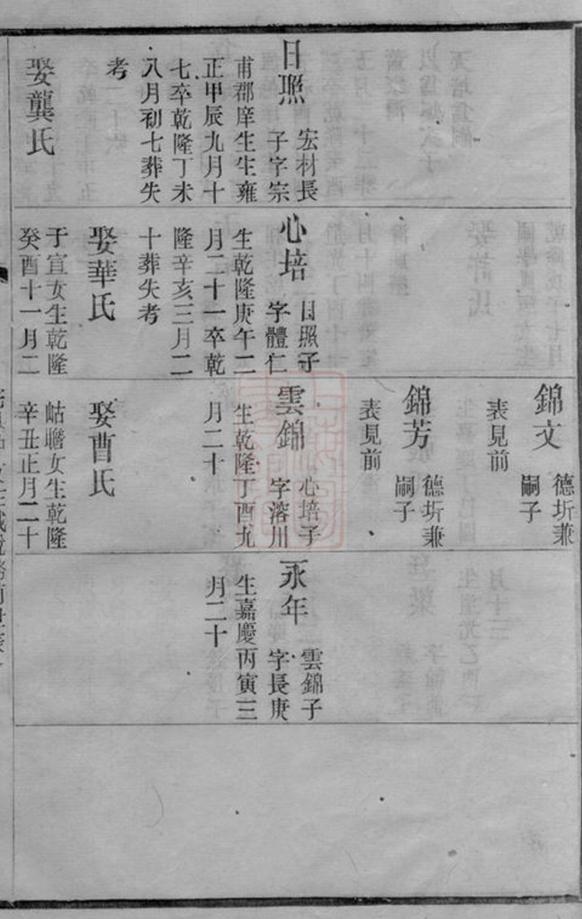 日照
宏材長
子字宗
甫郡庠生生雍
正甲辰九月十
七卒乾隆丁未
八月初七葬失
考
娶龔氏
心培
日照子
字體仁
生乾隆庚午二
月二十一卒乾
隆辛亥三月二
十葬失考
娶華氏
于宣女生乾隆
癸酉十一月二
錦文
德圻兼
嗣子
表見前
錦芳
德圻兼
嗣子
表見前
雲錦
心培子
字溶川
生乾隆丁酉九
月二十
娶曹氏
岵瞻女生乾隆
辛丑正月二十
永年
雲錦子
字長庚
生嘉慶丙寅三
月二十